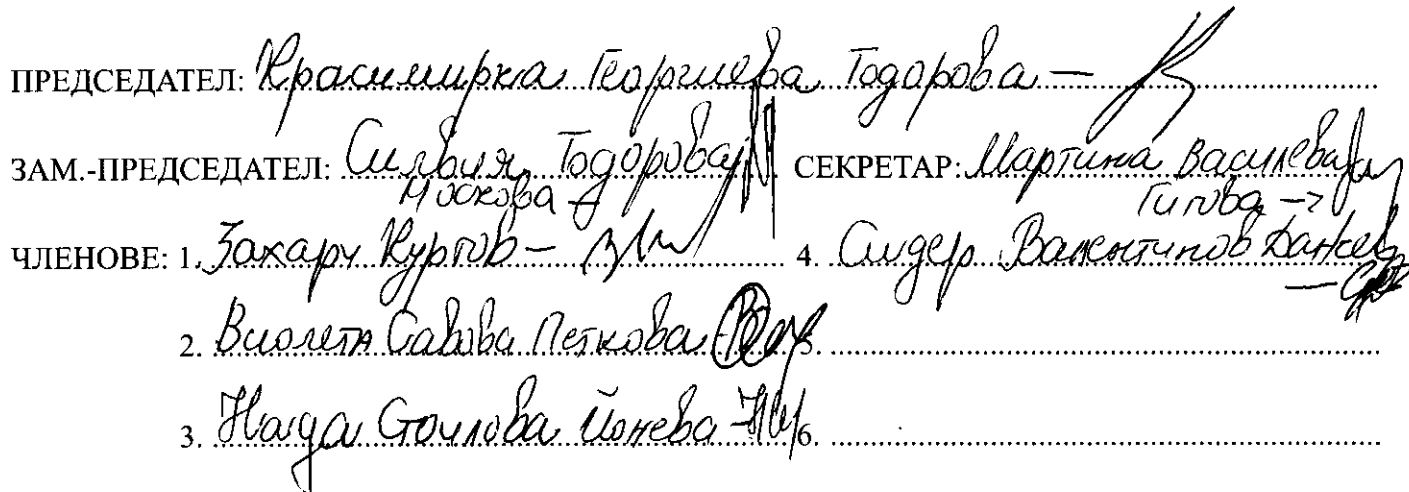 ПРЕДСЕДАТЕЛ: Красимирка Георгиева Тодорова –
ЗАМ.-ПРЕДСЕДАТЕЛ: Силвия Тодорова СЕКРЕТАР: Мартина Василева
Москова Титова –
ЧЛЕНОВЕ: 1. Захари Куртов – 4. Сидер Валентинов
2. Виолета Савова Петкова 5.
3. Стоилова Йонева – 6.